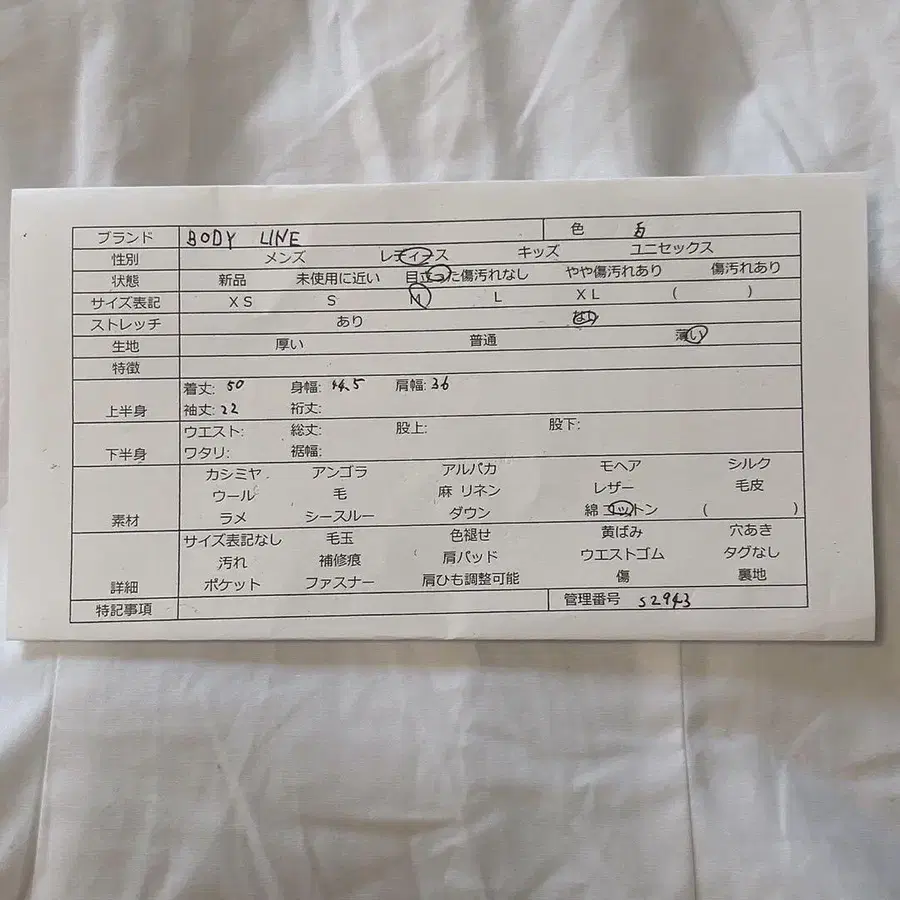 ブランド BODY LINE 色 白
性別 メンズ レディース キッズ ユニセックス
状態 新品 未使用に近い 目立った傷汚れなし やや傷汚れあり 傷汚れあり
サイズ表記 XS S M L XL ( )
ストレッチ あり なし
生地 厚い 普通 薄い
特徴
着丈: 50 身幅: 44.5 肩幅: 36
上半身 袖丈: 22 裄丈:
ウエスト: 総丈: 股上: 股下:
下半身 ワタリ: 裾幅:
カシミヤ アンゴラ アルパカ モヘア シルク
ウール 毛 麻 リネン レザー 毛皮
素材 ラメ シースルー ダウン 綿 コットン ( )
サイズ表記なし 毛玉 色褪せ 黄ばみ 穴あき
汚れ 補修痕 肩パッド ウエストゴム タグなし
詳細 ポケット ファスナー 肩ひも調整可能 傷 裏地
特記事項 管理番号 S2943